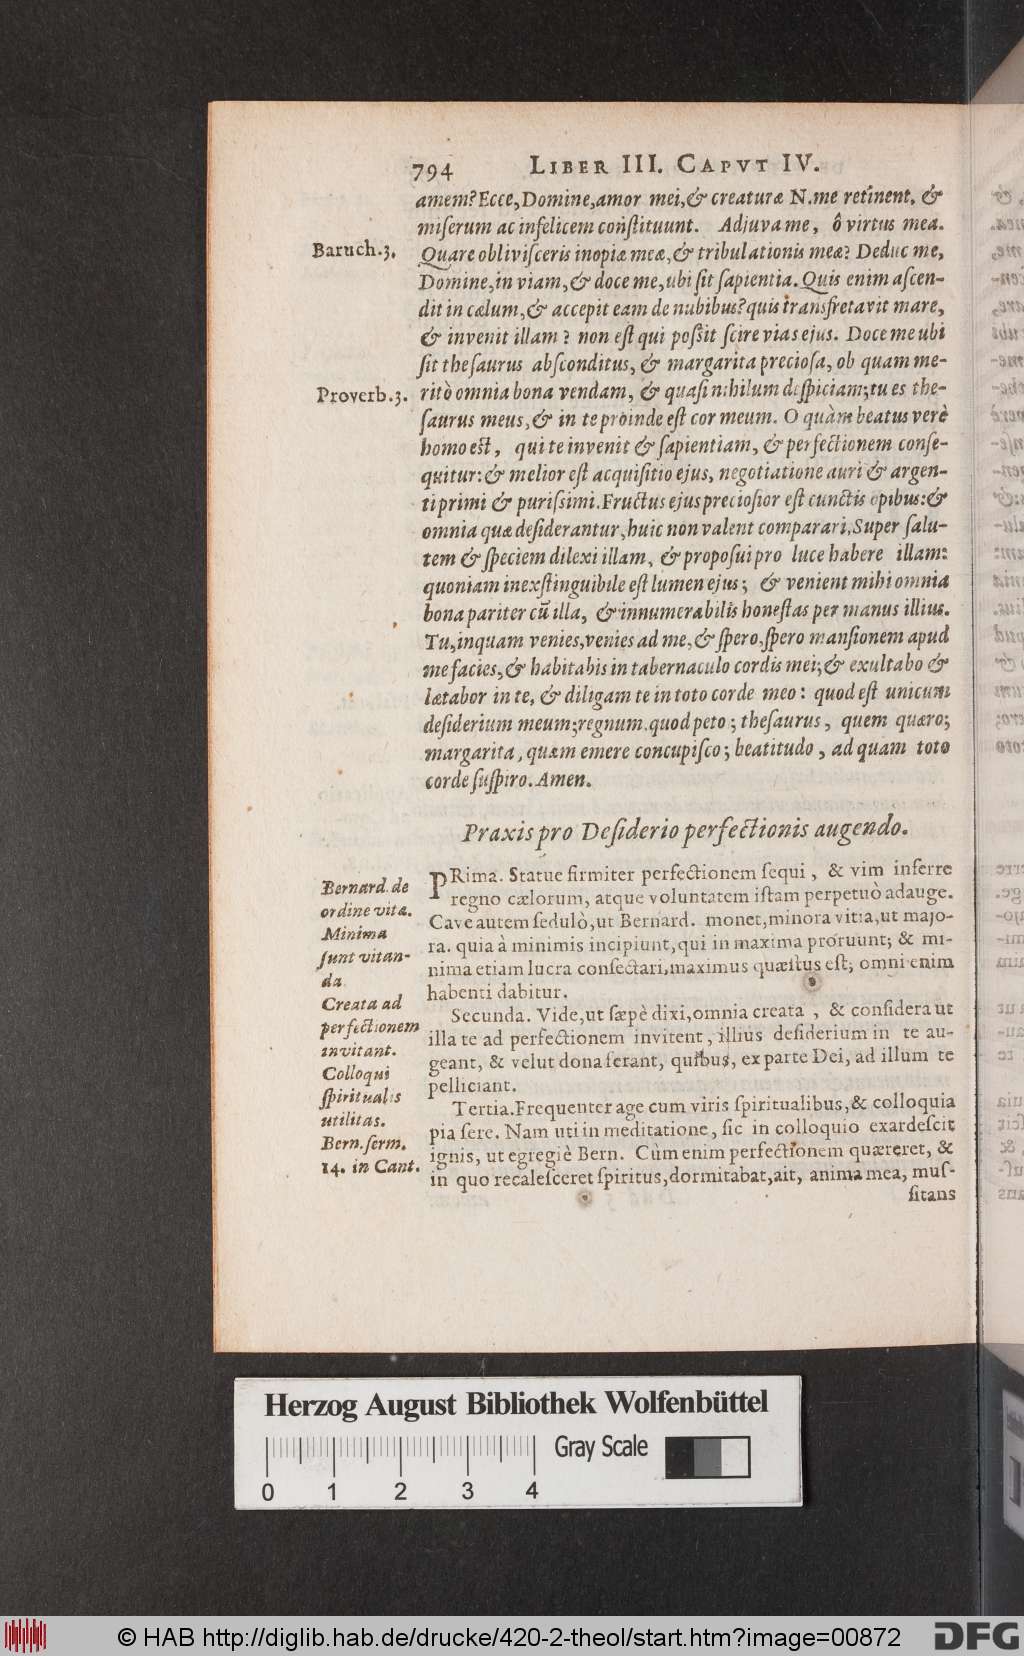 794 LIBER III. CAPVT IV.
amem? Ecce, Domine, amor mei, & creaturæ N. me retinent, &
miserum ac infelicem constituunt. Adjuva me, ô virtus mea.
Baruch. 3.
Quare oblivisceris inopiæ meæ, & tribulationis meæ? Deduc me,
Domine, in viam, & doce me, ubi sit sapientia. Quis enim ascen-
dit in cælum, & accepit eam de nubibus? quis transfretavit mare,
& invenit illam? non est qui possit scire vias ejus. Doce me ubi
sit thesaurus absconditus, & margarita preciosa, ob quam me-
Proverb. 3.
ritò omnia bona vendam, & quasi nihilum despiciam; tu es the-
saurus meus, & in te proinde est cor meum. O quàm beatus verè
homo est, qui te invenit & sapientiam, & perfectionem conse-
quitur: & melior est acquisitio ejus, negotiatione auri & argen-
ti primi & purissimi. Fructus ejus preciosior est cunctis opibus: &
omnia quæ desiderantur, huic non valent comparari. Super salu-
tem & speciem dilexi illam, & proposui pro luce habere illam:
quoniam inexstinguibile est lumen ejus; & venient mihi omnia
bona pariter cũ illa, & innumerabilis honestas per manus illius.
Tu, inquam venies, venies ad me, & spero, spero mansionem apud
me facies, & habitabis in tabernaculo cordis mei; & exultabo &
lætabor in te, & diligam te in toto corde meo: quod est unicum
desiderium meum; regnum, quod peto; thesaurus, quem quæro;
margarita, quam emere concupisco; beatitudo, ad quam toto
corde suspiro. Amen.
Praxis pro Desiderio perfectionis augendo.
PRima. Statue firmiter perfectionem sequi, & vim inferre
regno cælorum, atque voluntatem istam perpetuò adauge.
Cave autem sedulò, ut Bernard. monet, minora vitia, ut majo-
ra. quia à minimis incipiunt, qui in maxima proruunt; & mi-
nima etiam lucra consectari, maximus quæstus est; omni enim
habenti dabitur.
Secunda. Vide, ut sæpè dixi, omnia creata, & considera ut
illa te ad perfectionem invitent, illius desiderium in te au-
geant, & velut dona ferant, quibus, ex parte Dei, ad illum te
pelliciant.
Tertia. Frequenter age cum viris spiritualibus, & colloquia
pia sere. Nam uti in meditatione, sic in colloquio exardescit
ignis, ut egregiè Bern. Cùm enim perfectionem quæreret, &
in quo recalesceret spiritus, dormitabat, ait, anima mea, mus-
sitans
Bernard. de
ordine vitæ.
Minima
sunt vitan-
da
Creata ad
perfectionem
invitant.
Colloqui
spiritualis
utilitas.
Bern. serm.
14. in Cant.
Herzog August Bibliothek Wolfenbüttel
Gray Scale
0 1 2 3 4
© HAB http://diglib.hab.de/drucke/420-2-theol/start.htm?image=00872
DFG